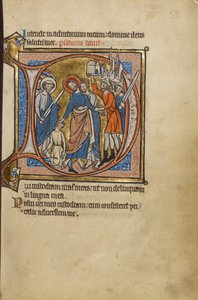 Intende in adiutorium meum: domine deus
salutis mee. psalmus dauid
D
ixi custodiam uias meas: ut non delinquam
in lingua mea.
Posui ori meo custodiam: cum consisteret pec
cator aduersum me.